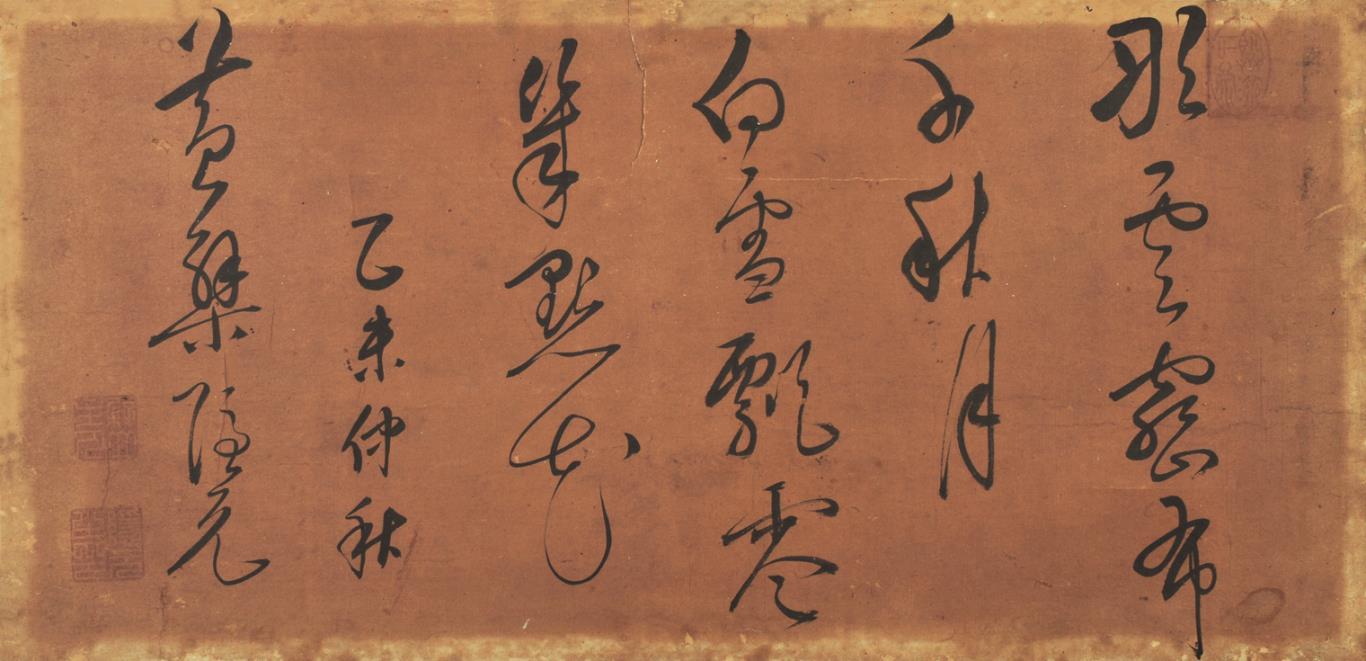 彤雲布
千秋月
白雪飄零
幾點花
乙未仲秋
黃檗隱元